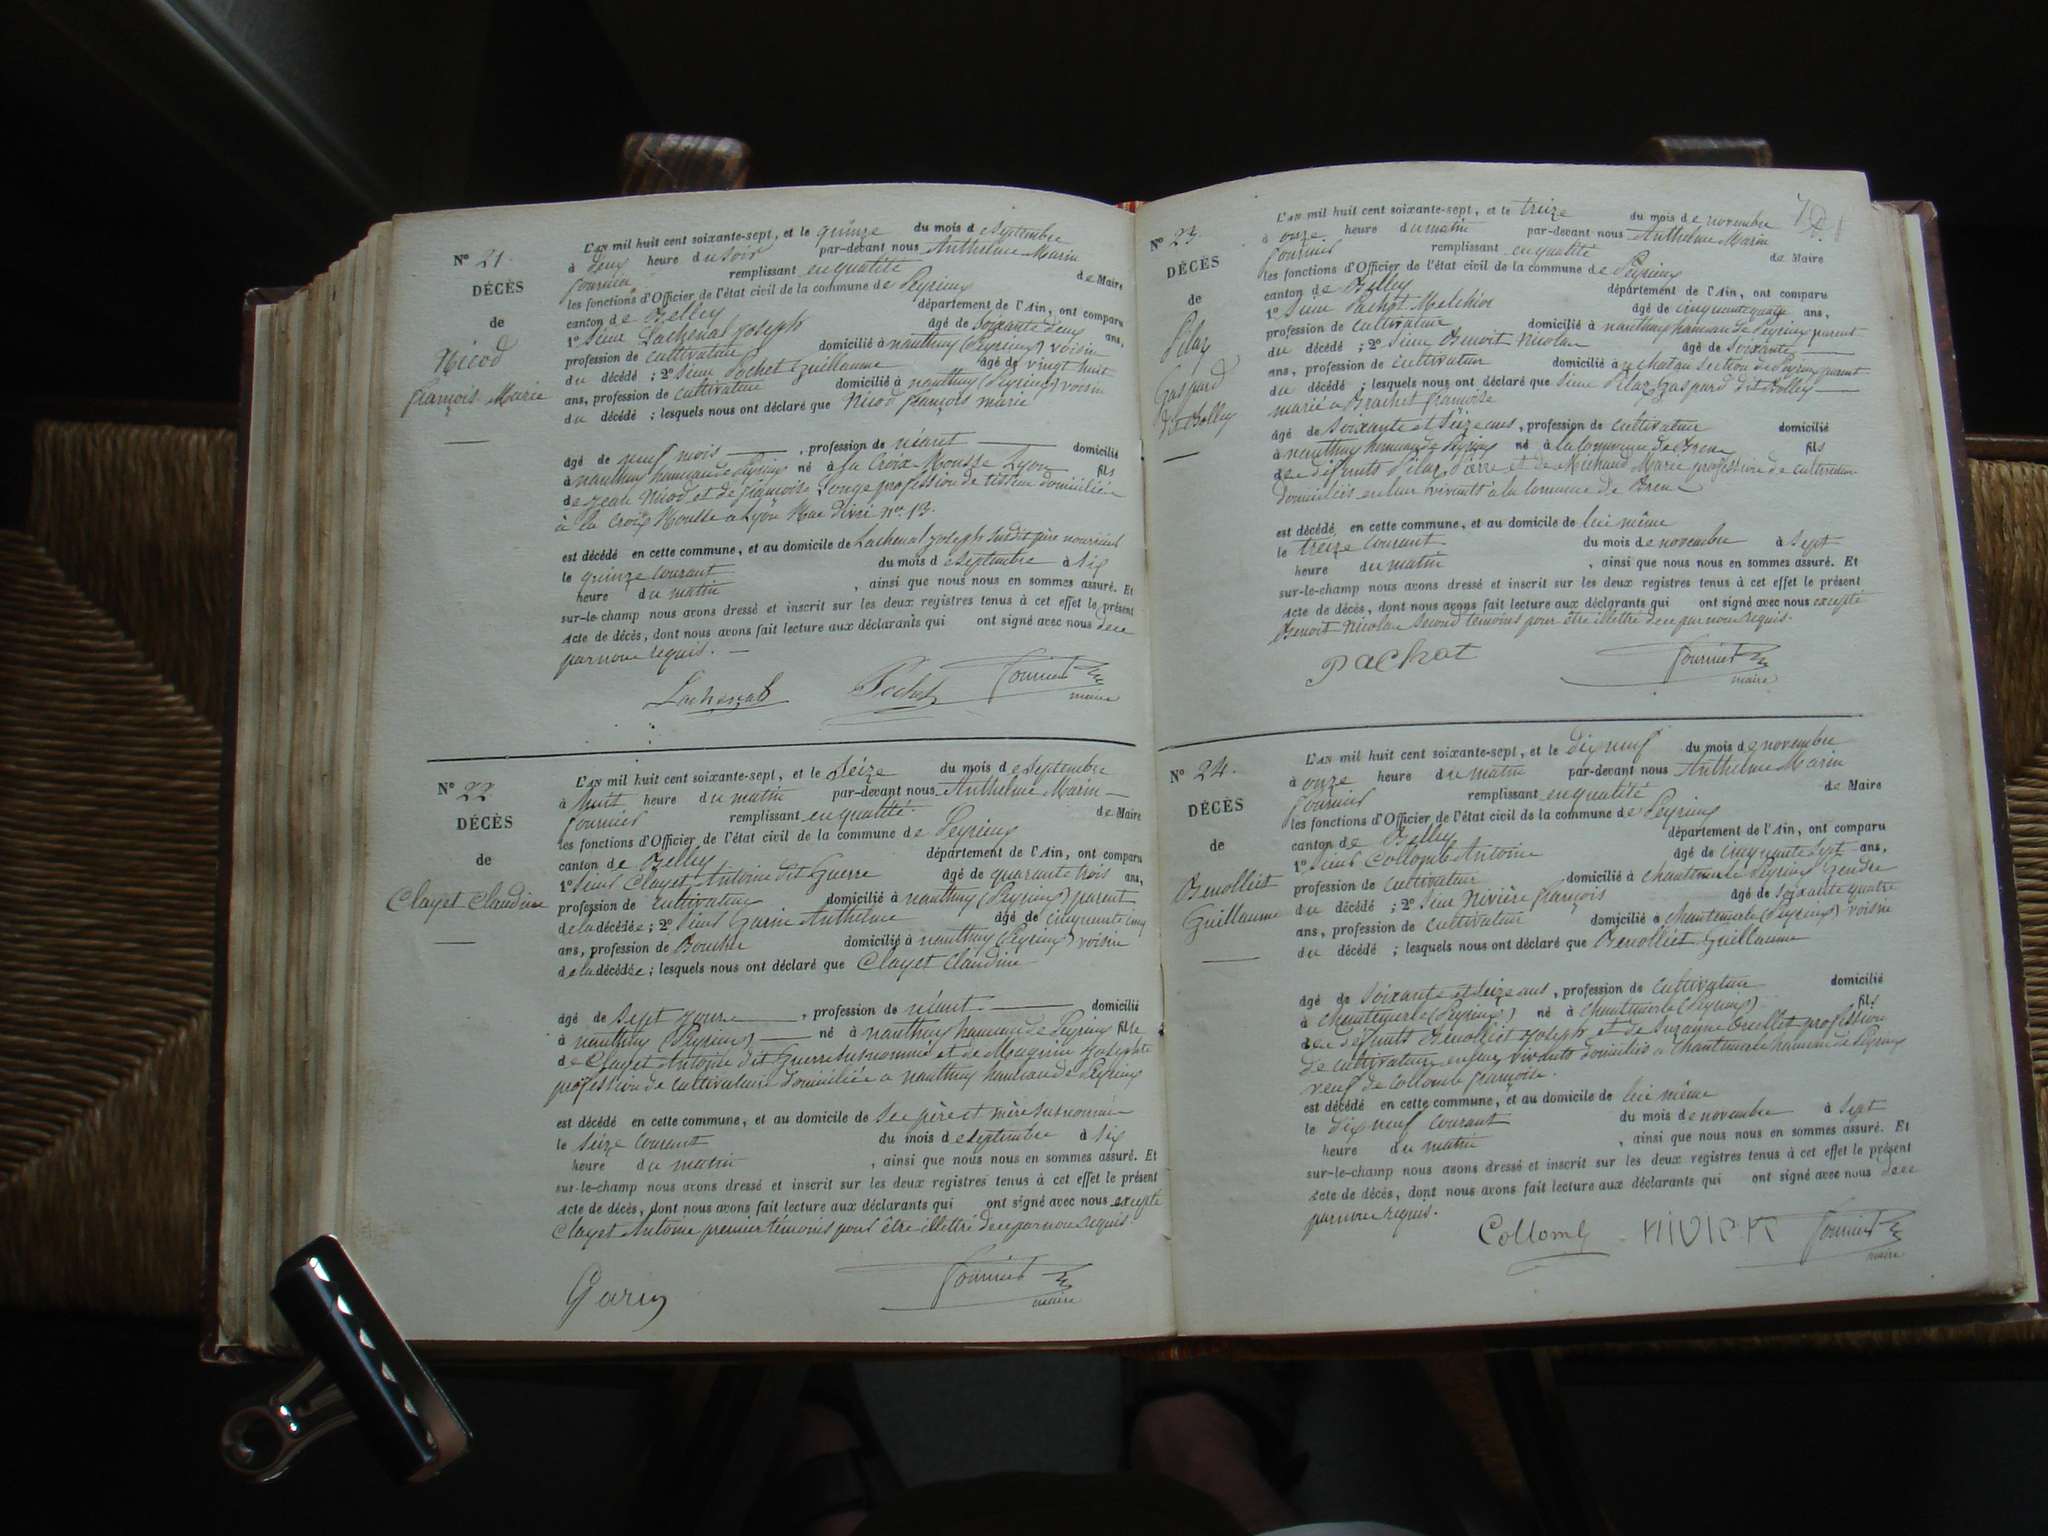 N° 21.
DÉCÈS
de
Nicod
françois Marie
L'AN mil huit cent soixante-sept, et le quinze du mois de septembre
à deux heure du soir par-devant nous Anthelme Marin
fournier remplissant en qualité de Maire
les fonctions d'Officier de l'état civil de la commune de Peyrieux
canton de Belley département de l'Ain, ont comparu
1° sieur Lachenal joseph âgé de soixante deux ans,
profession de cultivateur domicilié à nanthuy (Peyrieux) voisin
du décédé ; 2° sieur Pochet Guillaume âgé de vingt huit
ans, profession de cultivateur domicilié à nanthuy (Peyrieux) voisin
du décédé ; lesquels nous ont déclaré que Nicod françois marie
âgé de neuf mois , profession de néant domicilié
à nanthuy hameau de Peyrieux né à la Croix Rousse Lyon fils
de jean Nicod et de françoise Longe profession de tisseur domiciliés
à la Croix Rousse a Lyon Rue n° 13.
est décédé en cette commune, et au domicile de Lachenal joseph susdit père nourricier
le quinze courant du mois de septembre à six
heure du matin , ainsi que nous nous en sommes assuré. Et
sur-le-champ nous avons dressé et inscrit sur les deux registres tenus à cet effet le présent
acte de décès, dont nous avons fait lecture aux déclarants qui ont signé avec nous de ce
par nous requis.
Lachenal Pochet fournier
maire
N° 22
DÉCÈS
de
Clayet Claudine
L'AN mil huit cent soixante-sept, et le seize du mois de septembre
à huit heure du matin par-devant nous Anthelme Marin
fournier remplissant en qualité de Maire
les fonctions d'Officier de l'état civil de la commune de Peyrieux
canton de Belley département de l'Ain, ont comparu
1° sieur Clayet Antoine dit Guerre âgé de quarante trois ans,
profession de cultivateur domicilié à nanthuy (Peyrieux) parent
de la décédée ; 2° sieur Garin Anthelme âgé de cinquante cinq
ans, profession de Boucher domicilié à nanthuy (Peyrieux) voisin
de la décédée ; lesquels nous ont déclaré que Clayet Claudine
âgé de sept jours , profession de néant domicilié
à nanthuy (Peyrieux) né à nanthuy hameau de Peyrieux fille
de Clayet Antoine dit Guerre susnommé et de Mugnier josephte
profession de cultivateurs domiciliés a nanthuy hameau de Peyrieux
est décédé en cette commune, et au domicile de ses père et mère susnommés
le seize courant du mois de septembre à six
heure du matin , ainsi que nous nous en sommes assuré. Et
sur-le-champ nous avons dressé et inscrit sur les deux registres tenus à cet effet le présent
acte de décès, dont nous avons fait lecture aux déclarants qui ont signé avec nous excepté
Clayet Antoine premier témoins pour être illettré de ce par nous requis.
Garin fournier
maire
N° 23.
DÉCÈS
de
Pilaz
Gaspard
dit Bolley
L'AN mil huit cent soixante-sept, et le treize du mois de novembre
à onze heure du matin par-devant nous Anthelme Marin
fournier remplissant en qualité de Maire
les fonctions d'Officier de l'état civil de la commune de Peyrieux
canton de Belley département de l'Ain, ont comparu
1° sieur Pachot Melchior âgé de cinquante quatre ans,
profession de cultivateur domicilié à nanthuy hameau de Peyrieux parent
du décédé ; 2° sieur Benoit Nicolas âgé de soixante
ans, profession de cultivateur domicilié à section de Peyrieux parent
du décédé ; lesquels nous ont déclaré que sieur Pilaz Gaspard dit Bolley
marié a Brachet françoise
âgé de soixante et seize ans, profession de cultivateur domicilié
à nanthuy hameau de Peyrieux né à la commune de Brens fils
des défunts Pilaz Pierre et de Michaud Marie profession de cultivateurs
domiciliés en leur vivants à la commune de Brens
est décédé en cette commune, et au domicile de lui même
le treize courant du mois de novembre à sept
heure du matin , ainsi que nous nous en sommes assuré. Et
sur-le-champ nous avons dressé et inscrit sur les deux registres tenus à cet effet le présent
acte de décès, dont nous avons fait lecture aux déclarants qui ont signé avec nous excepté
Benoit Nicolas second témoins pour être illettré de ce par nous requis.
Pachot fournier
maire
N° 24.
DÉCÈS
de
Benolliet
Guillaume
L'AN mil huit cent soixante-sept, et le dix neuf du mois de novembre
à onze heure du matin par-devant nous Anthelme Marin
fournier remplissant en qualité de Maire
les fonctions d'Officier de l'état civil de la commune de Peyrieux
canton de Belley département de l'Ain, ont comparu
1° sieur Collomb Antoine âgé de cinquante sept ans,
profession de cultivateur domicilié à chantemerle Peyrieux Gendre
du décédé ; 2° sieur Rivière françois âgé de soixante quatre
ans, profession de cultivateur domicilié à chantemerle (Peyrieux) voisin
du décédé ; lesquels nous ont déclaré que Benolliet Guillaume
âgé de soixante et seize ans, profession de cultivateur domicilié
à chantemerle (Peyrieux) né à chantemerle (Peyrieux) fils
des défunts Benolliet joseph et de Suzanne profession
de cultivateurs en leur vivants domiciliés a chantemerle hameau de Peyrieux
veuf de Collomb françoise.
est décédé en cette commune, et au domicile de lui même
le dix neuf courant du mois de novembre à sept
heure du matin , ainsi que nous nous en sommes assuré. Et
sur-le-champ nous avons dressé et inscrit sur les deux registres tenus à cet effet le présent
acte de décès, dont nous avons fait lecture aux déclarants qui ont signé avec nous de ce
par nous requis.
Collomb fournier
maire